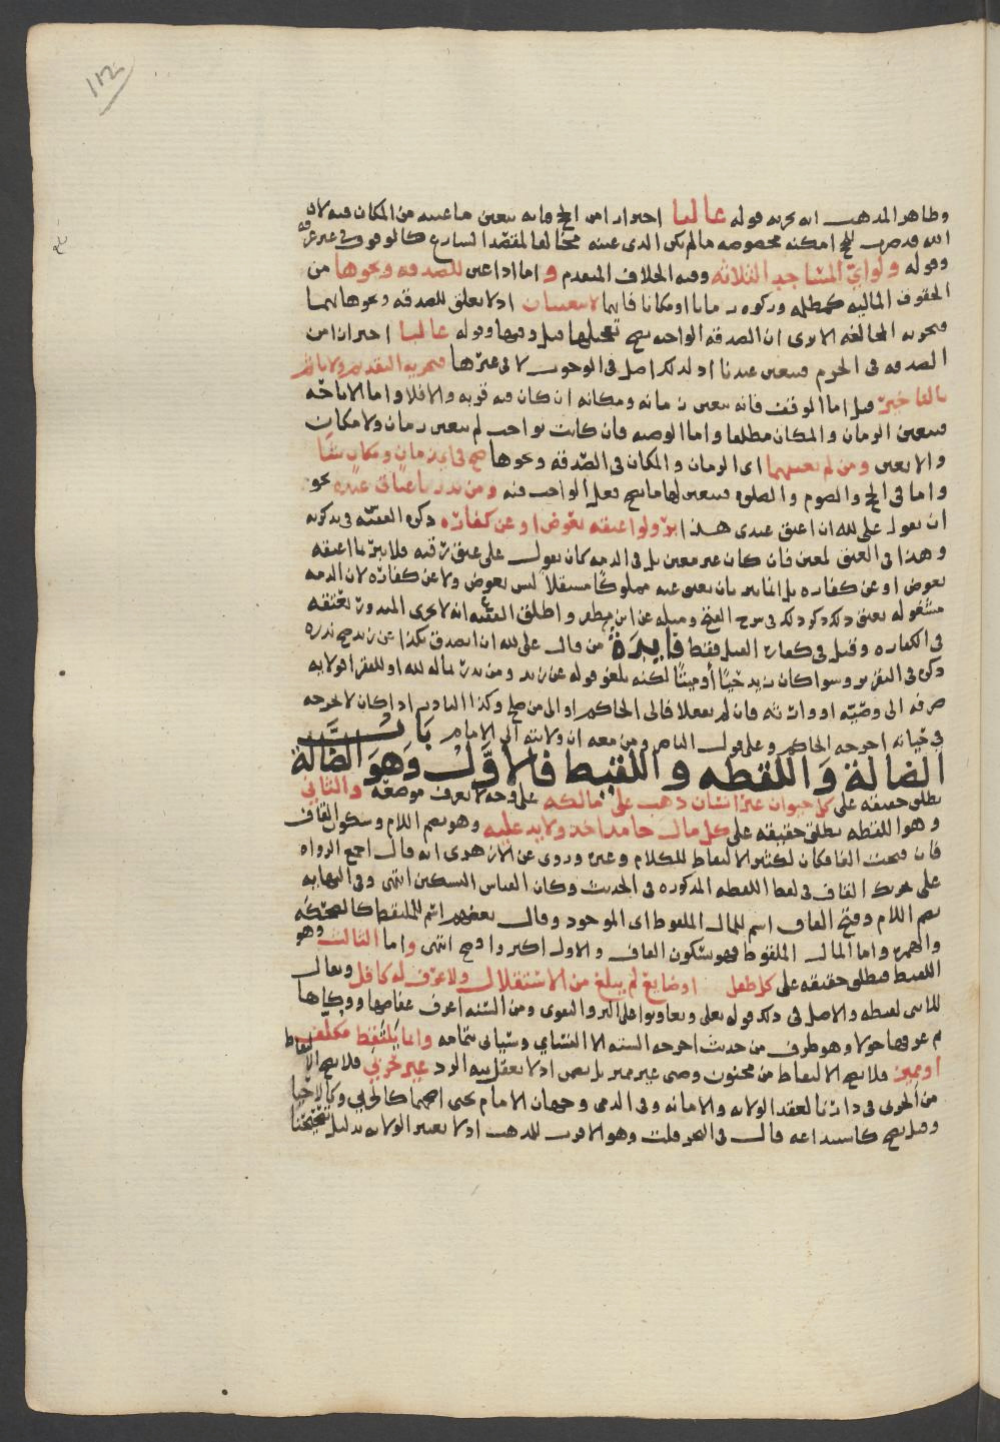 ١١٢
وظاهر المذهب انه يجزيه قوله غالبا احترازا من الحج فانه يتعين ما عينه من المكان فيه لان
الله قد ضرب للحج امكنه مخصوصه ما لم يكن الذي عينه مخالفا لمقصد الشارع كالوقوف في غير عرفه
وقوله ولو اي المساجد الثلاثه وفيه الخلاف المتقدم و اما اذا عين للصدقه ونحوها من
الحقوق الماليه كمظلمه وزكوه زمانا او مكانا فانهما لا يتعينان اذ لا تعلق للصدقه ونحوها بهما
فتجزيه المخالفه الا ترى ان الصدقه الواجبه يصح تعجيلها قبل وقتها وقوله غالبا احترازا من
الصدقه في الحرم فيتعين عندنا اذ لذلك اصل في الوجوب لا في غيرها فيجزيه التقديم ولا ياثم
بالتاخير قيل اما الوقف فانه يتعين زمانه ومكانه ان كان فيه قربه والا فلا واما الاباحه
فيتعين الزمان والمكان مطلقا واما الوصيه فان كانت بواجب لم يتعين زمان ولا مكان
والا تعين ومن لم يعينهما اى الزمان والمكان في الصدقه ونحوها صح في اى زمان ومكان شا
واما في الحج والصوم والصلوه فيتعين لها ما يصح فعل الواجب فيه ومن نذر باعتاق عبده نحو
ان يقول على لله ان اعتق عبدى هذا بر ولو اعتقه بعوض او عن كفاره ذكره الفقيه في تذكرته
وهذا في العتق لمعين فان كان غير معين بل في الذمه كان يقول على عتق رقبه فلا يبر بما اعتقه
بعوض او عن كفاره بل انما يبر بان يعتق عبد مملوكا مستقلا ليس بعوض ولا عن كفاره لان الذمه
مشغوله بعتق ذلك ذكر ذلك في شرح الفتح ومثله عن ابن مظفر واطلق الفقيه انه لا يجزى المنذور بعتقه
في الكفاره وقيل في كفاره القتل فقط فايدة من قال على لله ان اتصدق بكذا عن زيد صح نذره
ذكره في التقرير وسوا كان زيد حيا او ميتا لكنه يلغو قوله عن زيد ومن نذر بماله لله او للفقرا فولايه
صرفه الى وصيه او وارثه فان لم يفعلا فالى الحاكم او الى من صلح وكذا الناذر اذا كان لا يخرجه
في حياته اخرجه الحاكم وعلى قول الناصر ومن معه ان ولايته الى الامام بَابُ
الضالة وَاللقطه واللقيط فالاوَّلُ وَهوَ الضالة
يطلق حقيقه على كل حيوان غير انسان ذهب على مالكه على وجه لا يعرف موضعه والثاني
وهو اللقطه يطلق حقيقه على كل مال جامد اخذ ولا يد عليه وهو بضم اللام وسكون القاف
فان فتحت القاف كان لكثير الالتقاط للكلام وغيره وروى عن الازهرى انه قال اجمع الرواه
على تحريك القاف في لفظ اللقطه المذكوره في الحديث وكان القياس التسكين انتهى وفي النهايه
بضم اللام وفتح القاف اسم للمال الملقوط اى الموجود وقال بعضهم اسم للملتقط كالضحكه
والهمزه واما المال الملقوط فهو بسكون القاف والاول اكثر واصح انتهى واما الثالث وهو
اللقيط فيطلق حقيقه على كل طفل او ضايع لم يبلغ من الاستقلال ولا عرف له كافل ويقال
للانثى لقيطه والاصل في ذلك قوله تعلى وتعاونوا على البر والتقوى ومن السنه اعرف عفاصها ووكاها
ثم عرفها حولا وهو طرف من حديث اخرجه السته الا النساى وسياتى بتمامه وانما يلتقط مكلف
او مميز فلا يصح الالتقاط من مجنون وصبى غير مميز بل يضمن اذ لا يعقل بنيه الرد غير حربى فلا يصح الالتقاط
من الحربى في دارنا لفقد الولايه والامانه وفي الذمى وجهان الامام يحيى اصحهما كالحربى وكالاحيا
وقيل يصح كاستيداعه قال في البحر قلت وهو الاقرب للمذهب اذ لا تعتبر الولايه بدليل